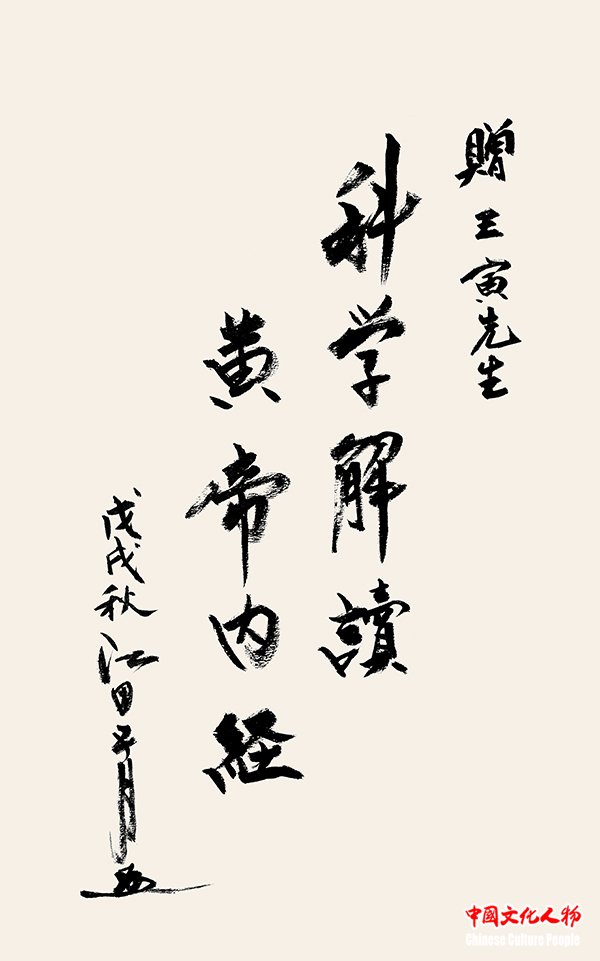 贈王寅先生
科学解讀
黄帝内経
戊戌秋江
中國文化人物
Chinese Culture People